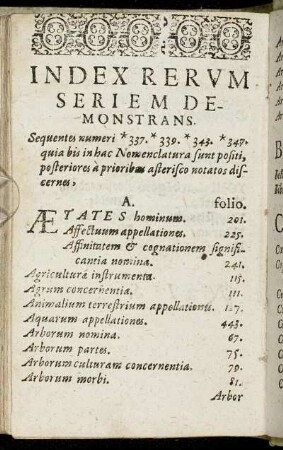 INDEX RERVM
SERIEM DE-
MONSTRANS.
Sequentes numeri *337. *339. *343. *347.
quia bis in hac Nomenclatura sunt positi,
posteriores à prioribus asterisco notatos dis-
cernes,
A. folio.
ÆTATES hominum. 201.
Affectuum appellationes. 225.
Affinitatem & cognationem signifi-
cantia nomina. 241.
Agriculturæ instrumenta. 115.
Agrum concernentia. 111.
Animalium terrestrium appellationes. 127.
Aquarum appellationes. 443.
Arborum nomina. 67.
Arborum partes. 75.
Arborum culturam concernentia. 79.
Arborum morbi. 81.
Arbor